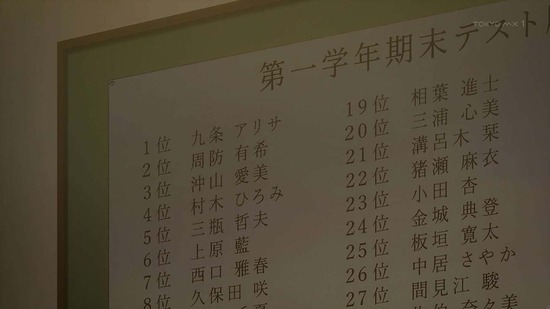 TOKYO MX 1
第一学年期末テスト
1位 九条 アリサ
2位 周防 有希
3位 沖山 愛美
4位 村木 ひろみ
5位 三瓶 哲夫
6位 上原 藍
7位 西口 雅春
8位 久保田 咲
19位 相葉 進士
20位 三浦 心美
21位 溝呂木 栞
22位 猪瀬 麻衣
23位 小田 杏
24位 金城 典登
25位 板垣 寛太
26位 中居 さやか
27位 間見江 駿
奈々美